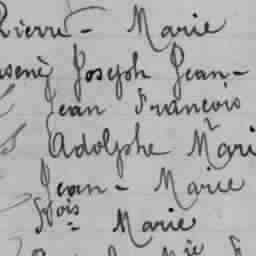 Pierre - Marie
Joseph Jean -
Jean François
Adolphe Mari
Jean - Marie
Fçois - Marie